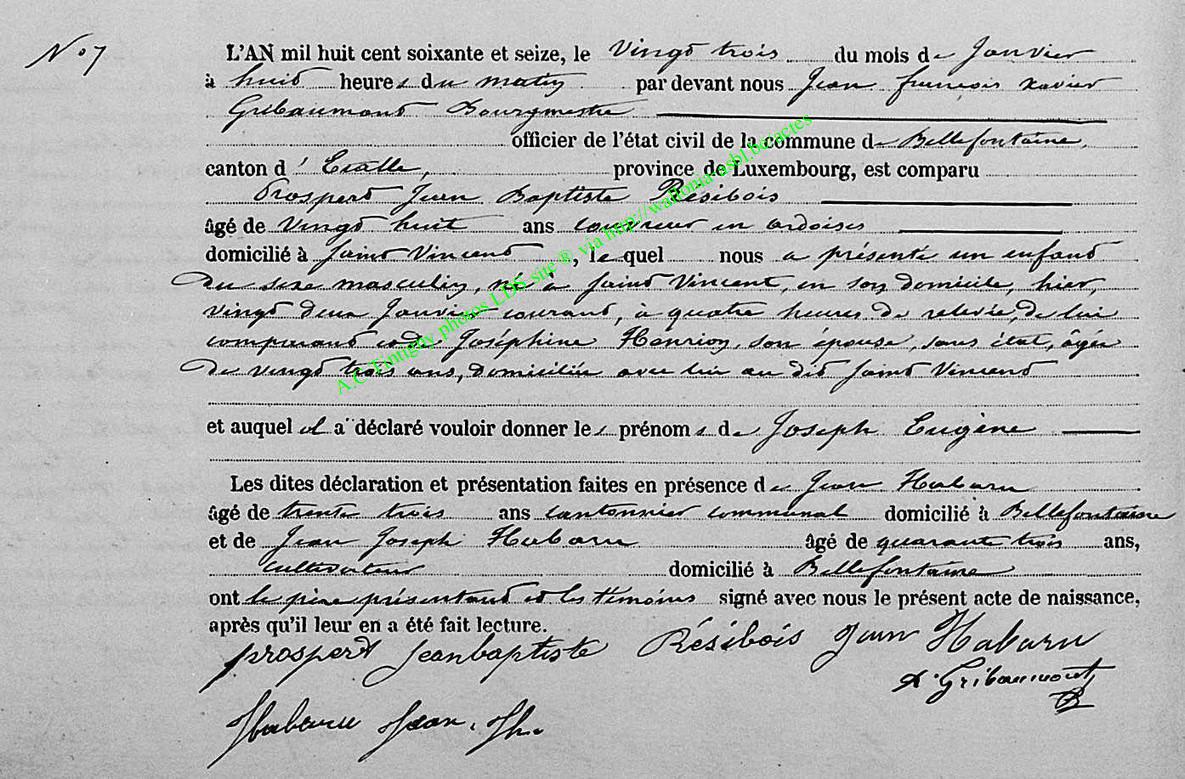 N° 7
L'AN mil huit cent soixante et seize, le vingt trois du mois de Janvier
à huit heures du matin par devant nous Jean françois xavier
Gribaumont Bourgmestre
officier de l'état civil de la commune de Bellefontaine,
canton d'Etalle, province de Luxembourg, est comparu
Prosperd Jean Baptiste Résibois
âgé de vingt huit ans couvreur en ardoises
domicilié à Saint Vincent, lequel nous a présenté un enfant
du sexe masculin, né à Saint Vincent, en son domicile, hier,
vingt deux Janvier courant, à quatre heures de relevée, de lui
comparant et de Joséphine Henrion, son épouse, sans état, âgée
de vingt trois ans, domiciliée avec lui au dit Saint Vincent
et auquel il a déclaré vouloir donner les prénoms de Joseph Eugène
Les dites déclaration et présentation faites en présence de Jean Habaru
âgé de trente trois ans cantonnier communal domicilié à Bellefontaine
et de Jean Joseph Habaru âgé de quarante trois ans,
cultivateur domicilié à Bellefontaine
ont le père présentant et les témoins signé avec nous le présent acte de naissance,
après qu'il leur en a été fait lecture.
prosperd Jeanbaptiste Résibois Jean Habaru
X. Gribaumont
Habaru Jean. Jh.
A.C. Tintigny photos LDS snc ®, via http://wallonia-asbl.be/actes